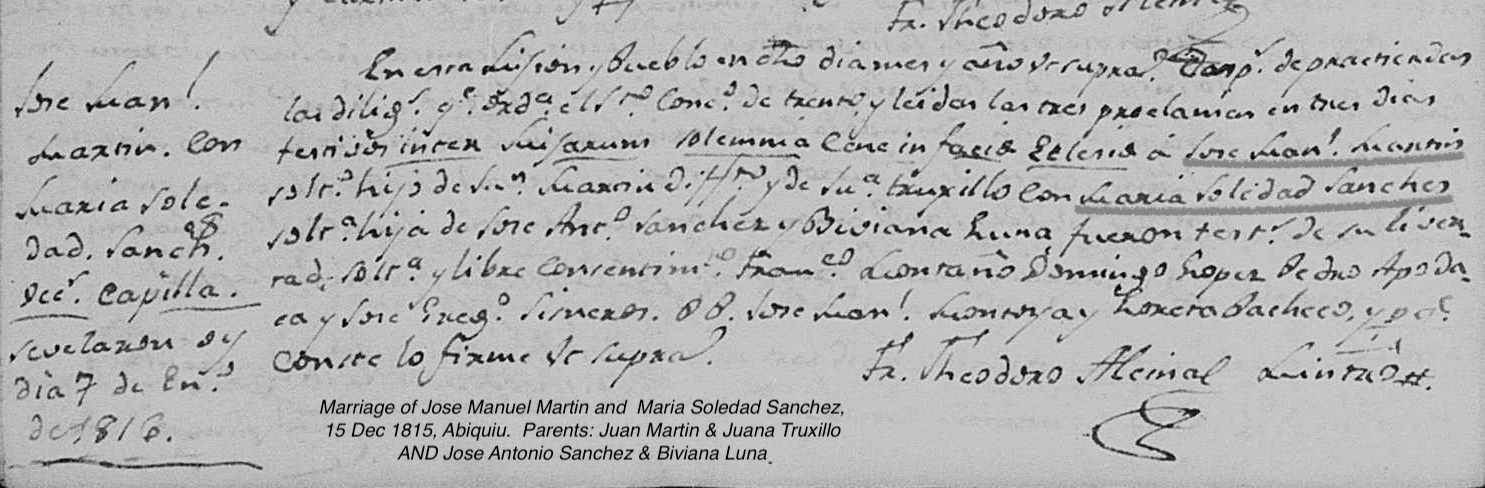 Fr. Theodoro Alcina
Jose Man.l
Martin. Con
Maria Sole-
dad. Sanch.s
Vec.s Capilla.
Sevelaron oy
dia 7 de En.o
de 1816.
En esta Mision y Pueblo en dho dia mes y año Vt supra. de practicadas
las dilig.s q.e orda el S.to Conc.o de trento, y leidas las tres proclamas en tres dias
festivos inter Misarum Solemnia Cace in facie Eclesie á Jose Man.l Martin
solt.o hijo de Ju.n Martin diff.to y de Ju.a truxillo con Maria Soledad Sanches
solt.a hija de Jose Ant.o Sanchez y Biviana Luna, fueron test.s de su liver-
tad, solt.a y libre Consentim.to Fran.co Montaño Domingo Lopez Pedro Apoda-
ca y Jose Greg.o Sisneros. PP. Jose Man.l Montoya y Loreta Pacheco, y p.a q.e
Conste lo firme Vt supra.
Fr. Theodoro Alcina Mintro
Marriage of Jose Manuel Martin and Maria Soledad Sanchez,
15 Dec 1815, Abiquiu. Parents: Juan Martin & Juana Truxillo
AND Jose Antonio Sanchez & Biviana Luna